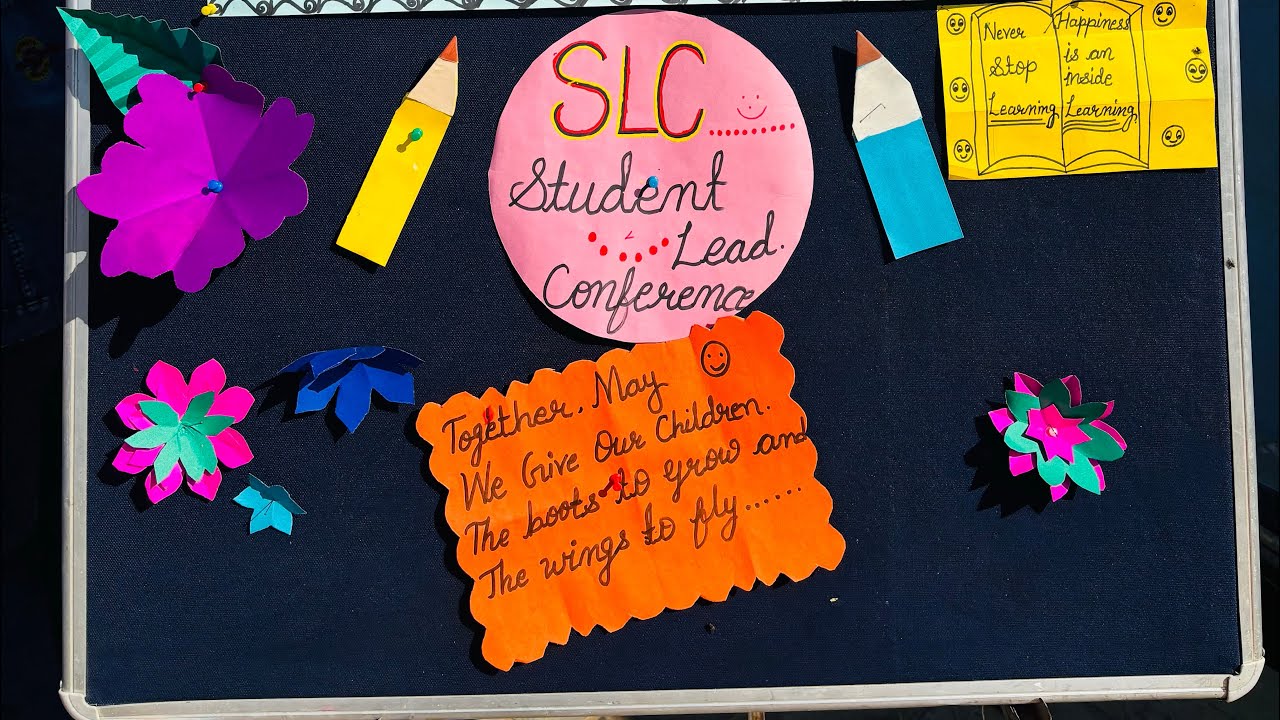 SLC
Student
Lead.
Conference
Never
Stop
Learning
Happiness
is an
inside
Learning
Together, May
We Give Our Children.
The boots to grow and
The wings to fly......